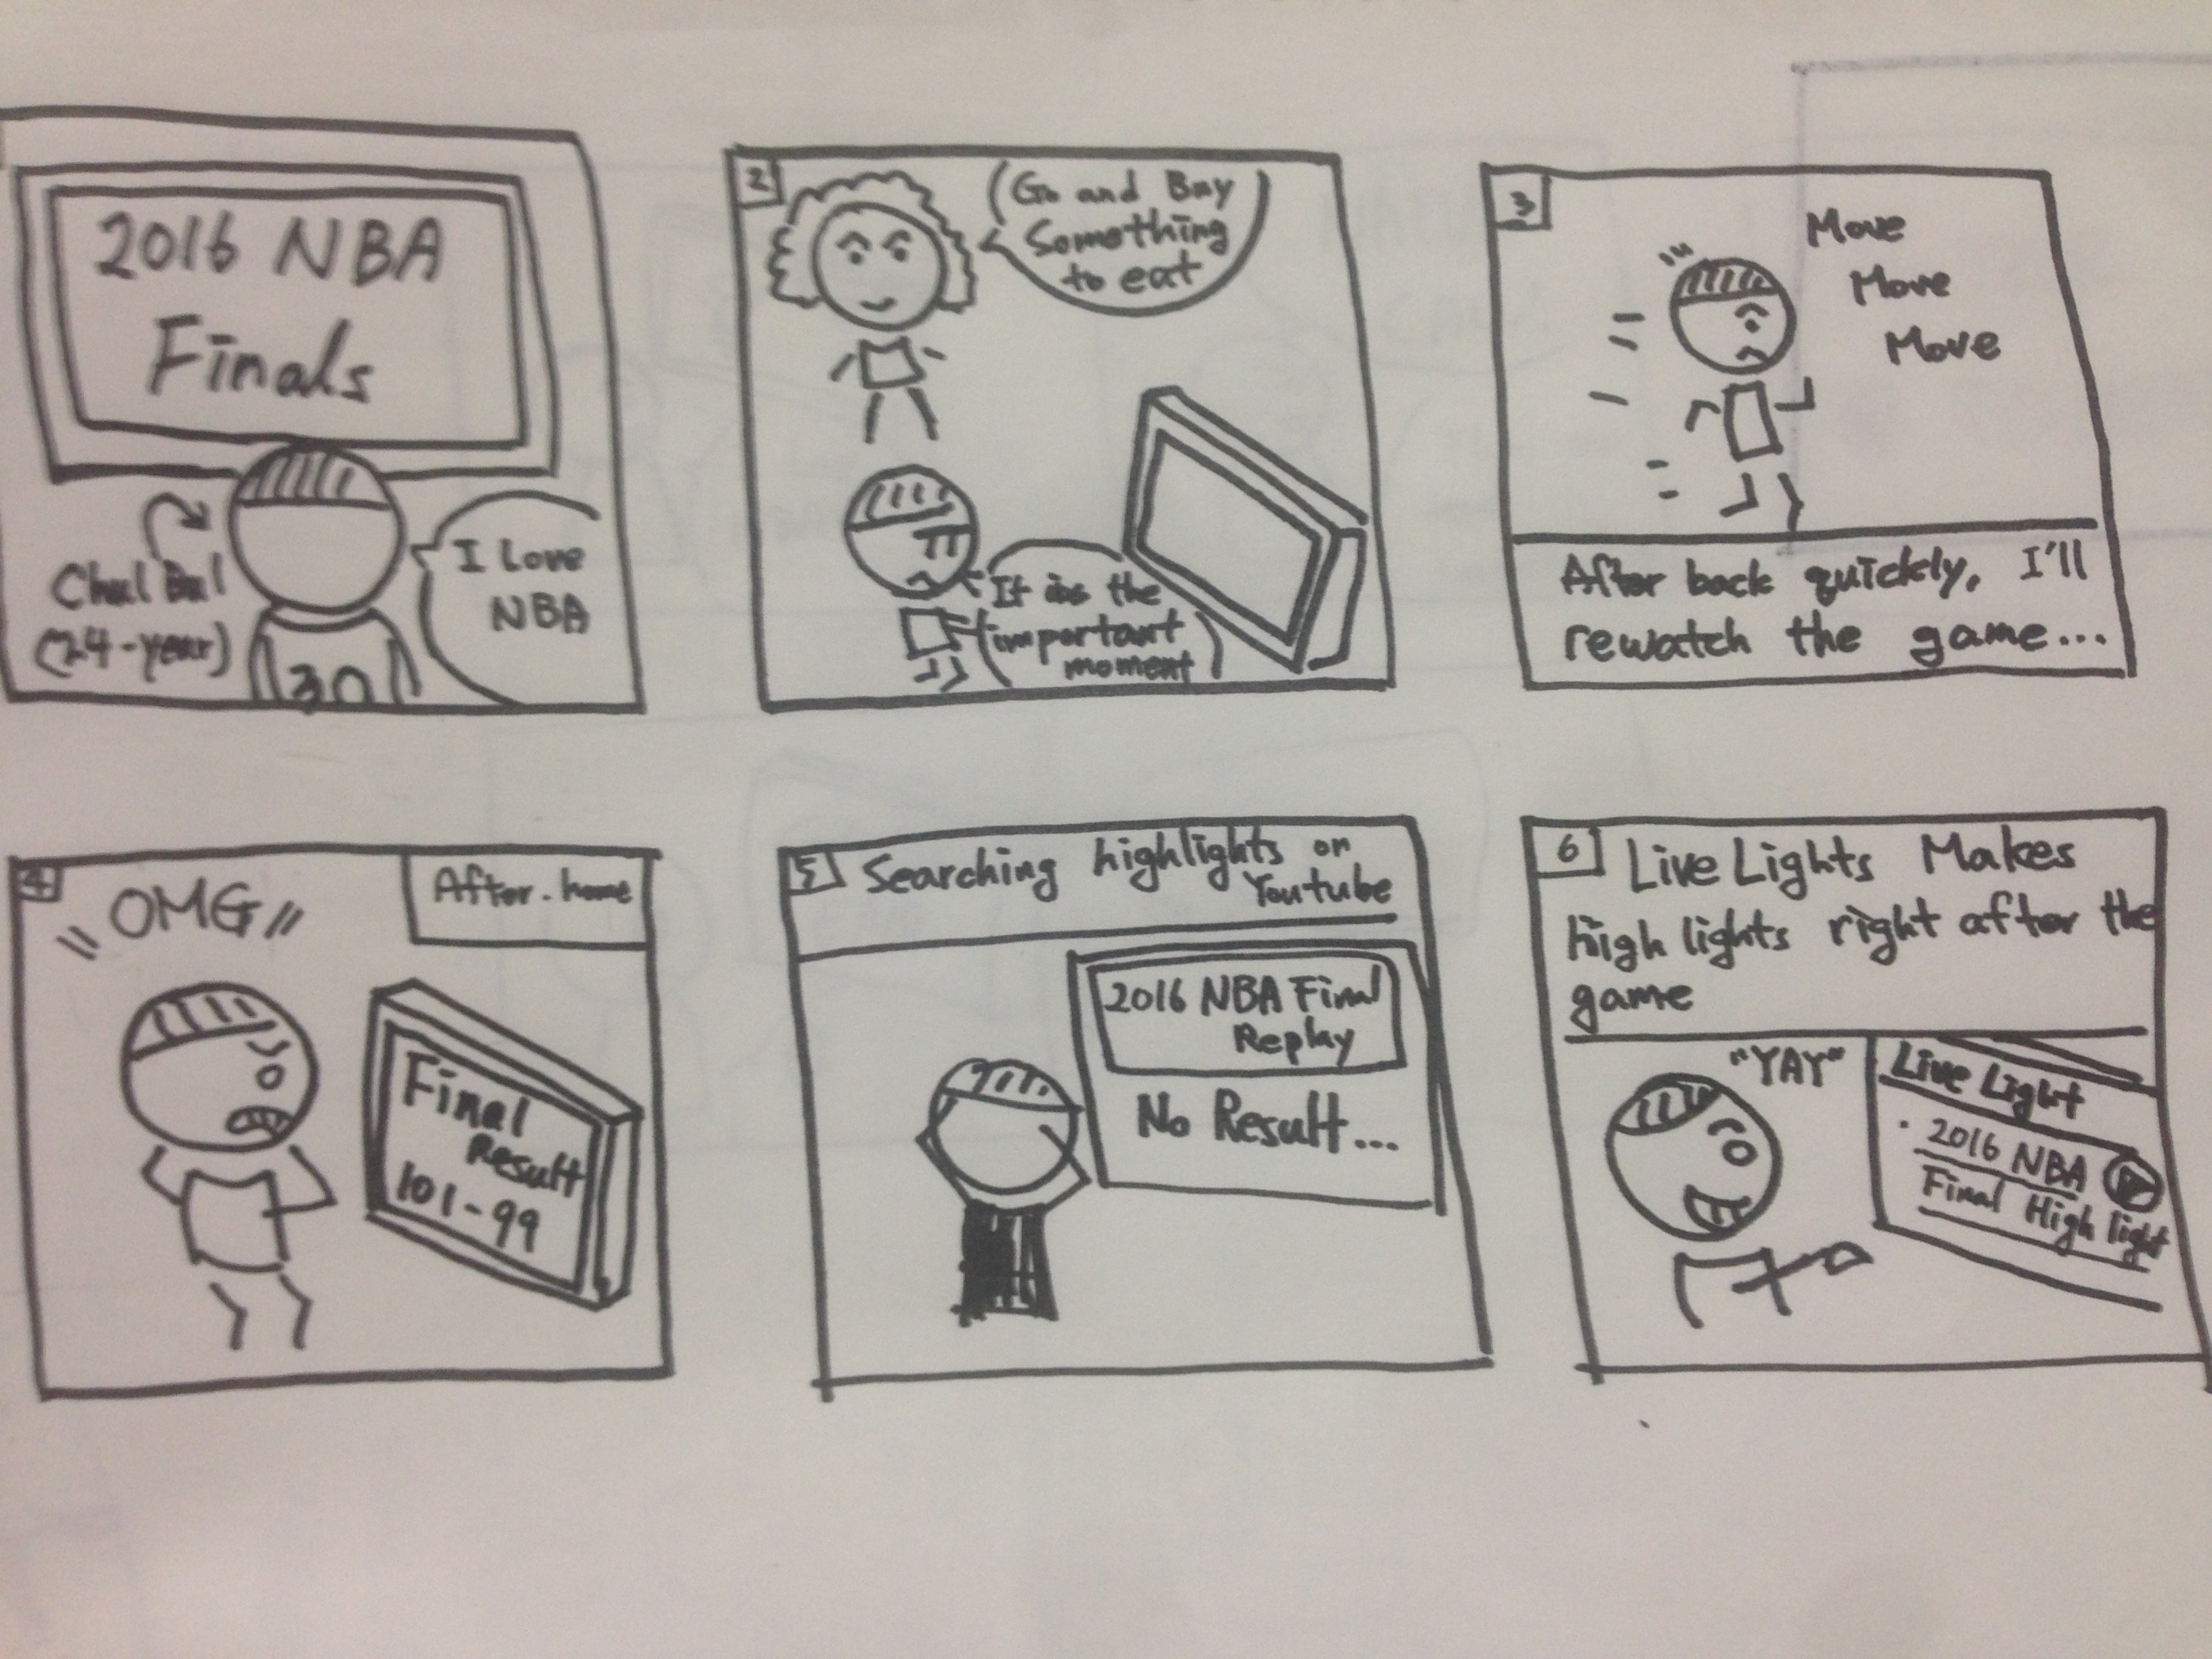 2016 NBA
Finals
I Love
NBA
(24-year)
30
2
Go and Buy
Something
to eat
It is the
important
moment
3
Move
Move
Move
After back quickly, I'll
rewatch the game...
4
"OMG"
After.home
Final
Result
101-99
5
Searching highlights on
Youtube
2016 NBA Final
Replay
No Result...
6
Live Lights Makes
high lights right after the
game
"YAY"
Live Light
· 2016 NBA
Final High light